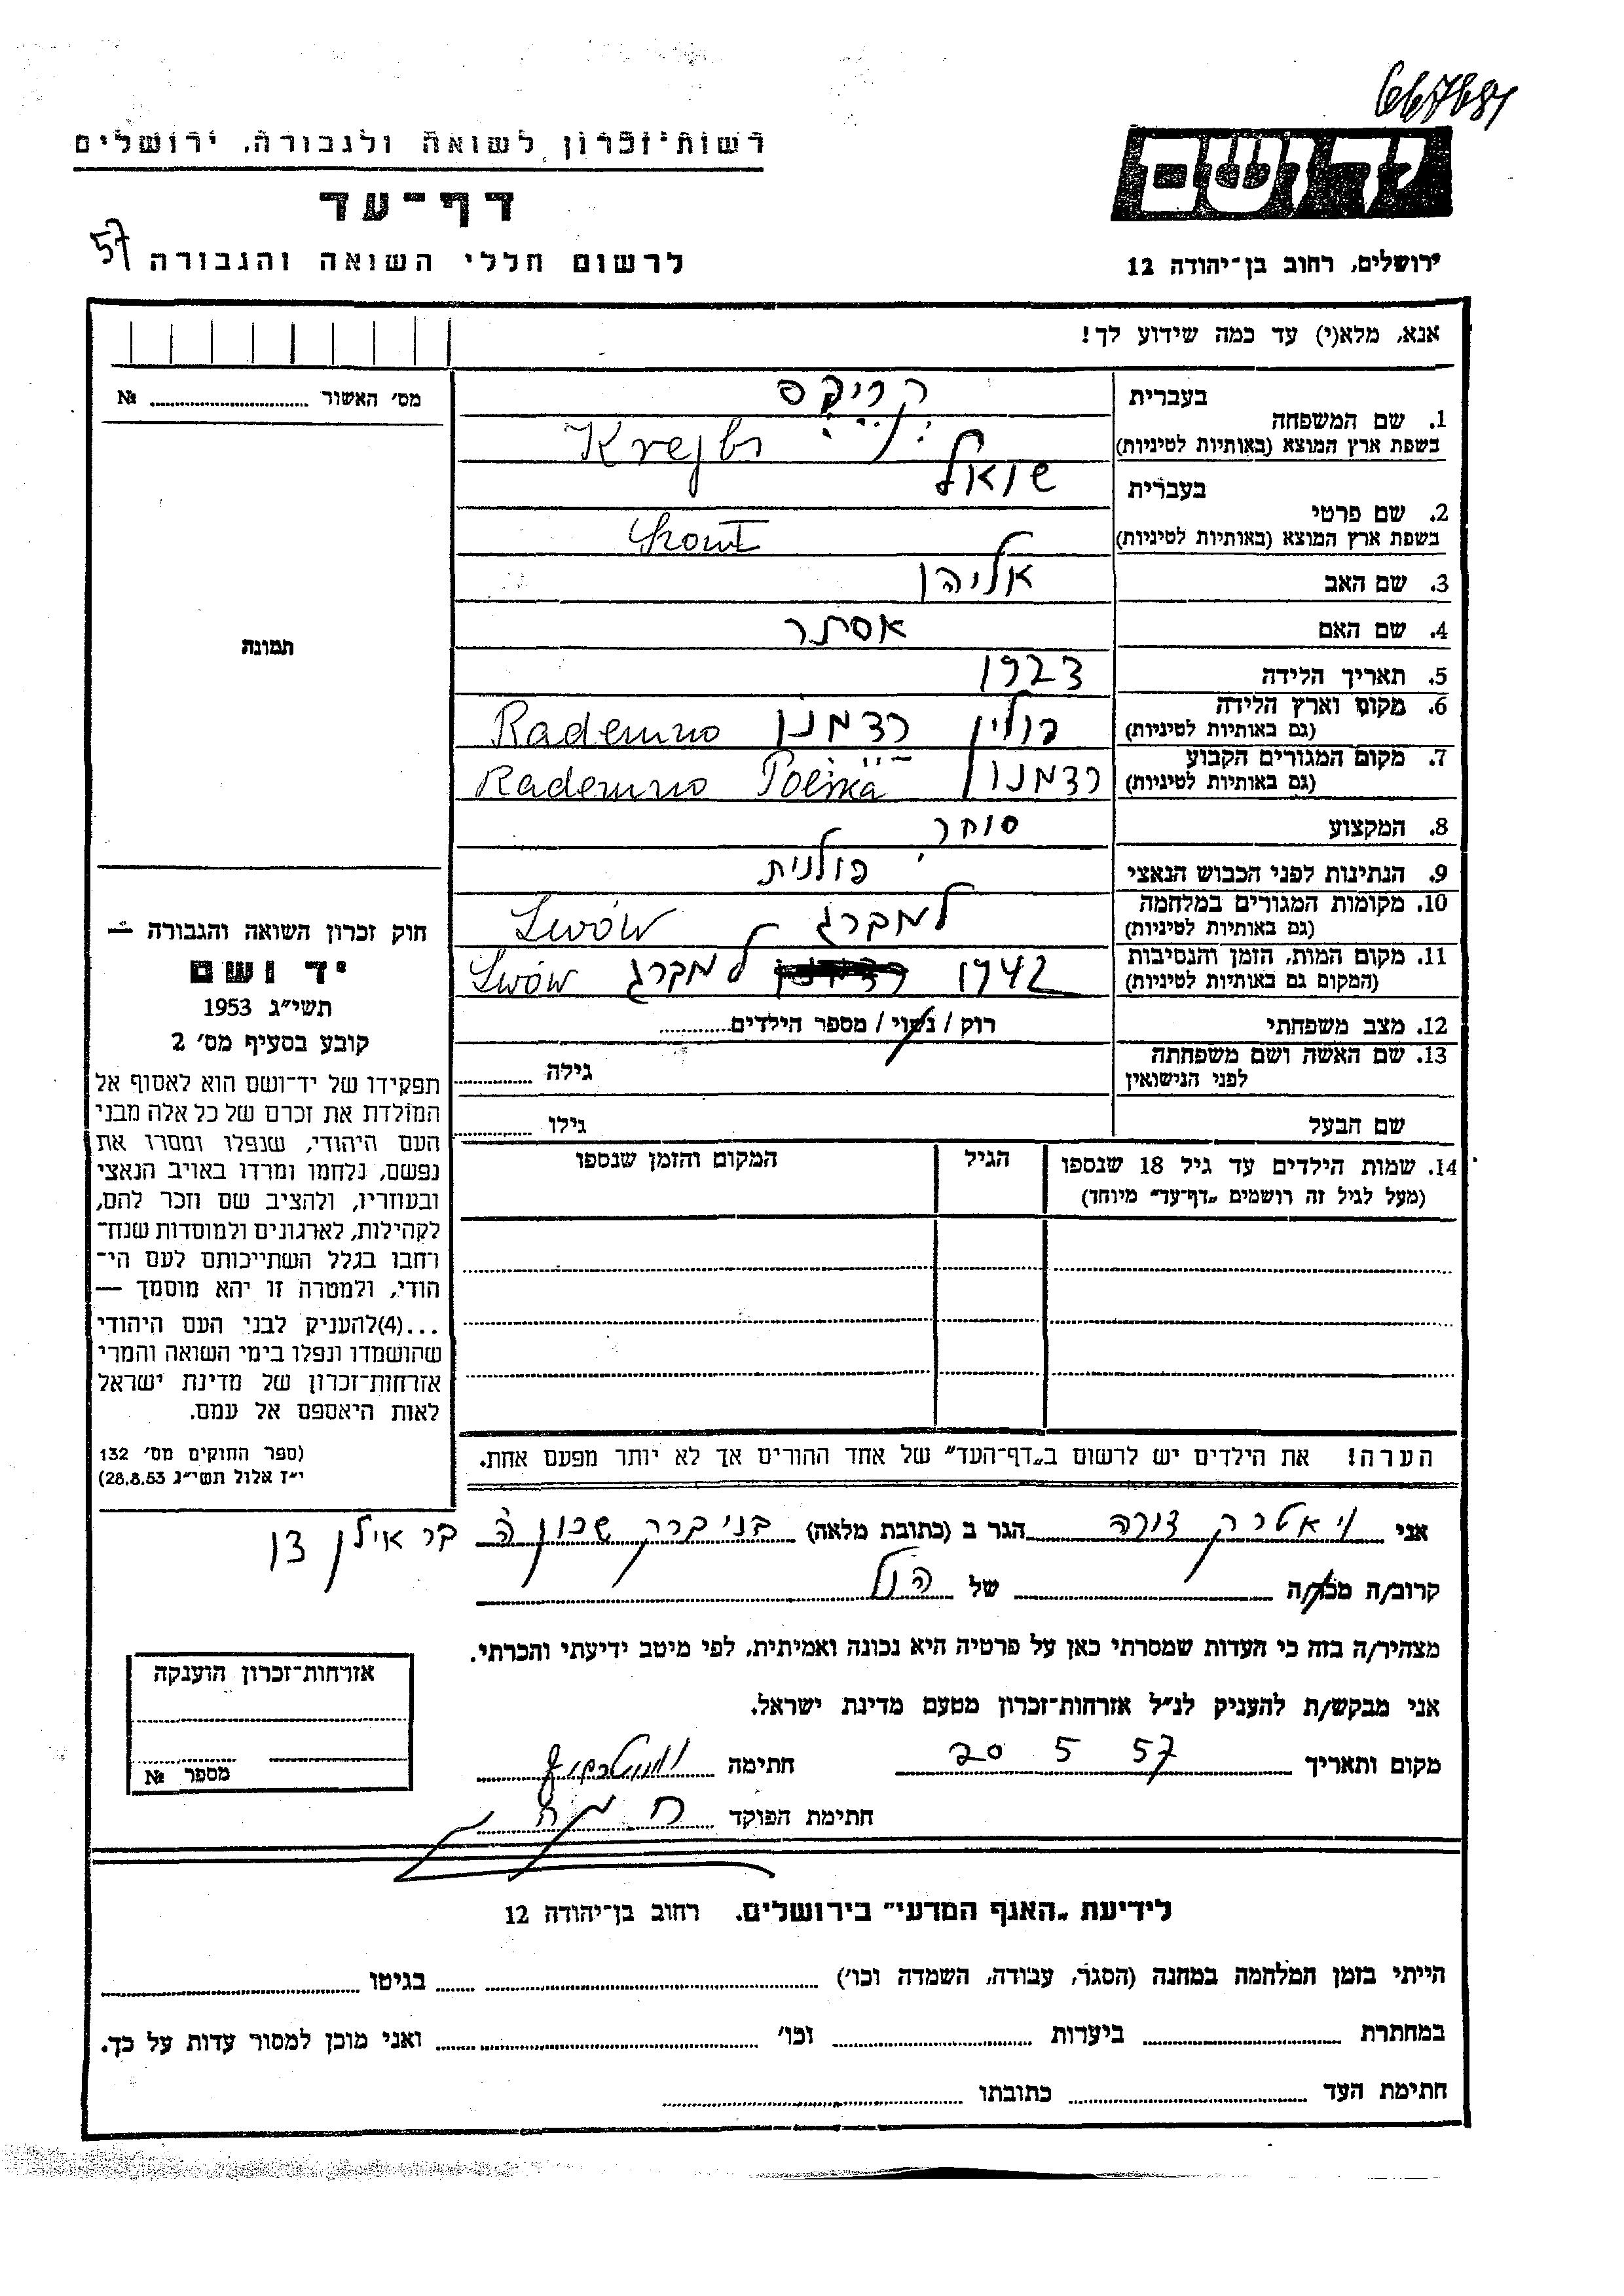 667681
רשות־זכרון לשואה ולגבורה, ירושלים
יד ושם
דף־עד
57
לרשום חללי השואה והגבורה
ירושלים, רחוב בן־יהודה 12
אנא, מלא(י) עד כמה שידוע לך!
מס׳ האשור № 
1. שם המשפחה
בעברית
בשפת ארץ המוצא (באותיות לטיניות)
2. שם פרטי
בעברית שאול
בשפת ארץ המוצא (באותיות לטיניות)
3. שם האב אליהו
4. שם האם אסתר
תמונה
5. תאריך הלידה 1923
6. מקום וארץ הלידה
(גם באותיות לטיניות) פולין רדמנו Rademno
7. מקום המגורים הקבוע
(גם באותיות לטיניות) רדמנו Rademno Polska
8. המקצוע סוחר
9. הנתינות לפני הכבוש הנאצי פולנית
10. מקומות המגורים במלחמה
(גם באותיות לטיניות) למברג Lwów
11. מקום המות, הזמן והנסיבות
(המקום גם באותיות לטיניות) 1942 למברג Lwów
12. מצב משפחתי רוק / נשוי / מספר הילדים
13. שם האשה ושם משפחתה
לפני הנישואין גילה
שם הבעל גילו
14. שמות הילדים עד גיל 18 שנספו
(מעל לגיל זה רושמים „דף־עד״ מיוחד)
הגיל
המקום והזמן שנספו
חוק זכרון השואה והגבורה —
יד ושם
תשי״ג 1953
קובע בסעיף מס׳ 2
תפקידו של יד־ושם הוא לאסוף אל
המולדת את זכרם של כל אלה מבני
העם היהודי, שנפלו ומסרו את
נפשם, נלחמו ומרדו באויב הנאצי
ובעוזריו, ולהציב שם וזכר להם,
לקהילות, לארגונים ולמוסדות שנח־
רבו בגלל השתייכותם לעם הי־
הודי, ולמטרה זו יהא מוסמך —
...(4)להעניק לבני העם היהודי
שהושמדו ונפלו בימי השואה והמרי
אזרחות־זכרון של מדינת ישראל
לאות היאספם אל עמם.
(ספר החוקים מס׳ 132
י״ז אלול תשי״ג 28.8.53)
הערה! את הילדים יש לרשום ב„דף־העד״ של אחד ההורים אך לא יותר מפעם אחת.
אני ויאטרק צורה הגר ב (כתובת מלאה) בני ברק שכון ה בר אילן
קרוב/ה מכר/ה של הנ״ל
מצהיר/ה בזה כי העדות שמסרתי כאן על פרטיה היא נכונה ואמיתית, לפי מיטב ידיעתי והכרתי.
אני מבקש/ת להעניק לנ״ל אזרחות־זכרון מטעם מדינת ישראל.
מקום ותאריך 20 5 57 חתימה
חתימת הפוקד
אזרחות־זכרון הוענקה
מספר №
לידיעת „האגף המדעי״ בירושלים. רחוב בן־יהודה 12
הייתי בזמן המלחמה במחנה (הסגר, עבודה, השמדה וכו׳) בגיטו
במחתרת ביערות וכו׳ ואני מוכן למסור עדות על כך.
חתימת העד כתובתו